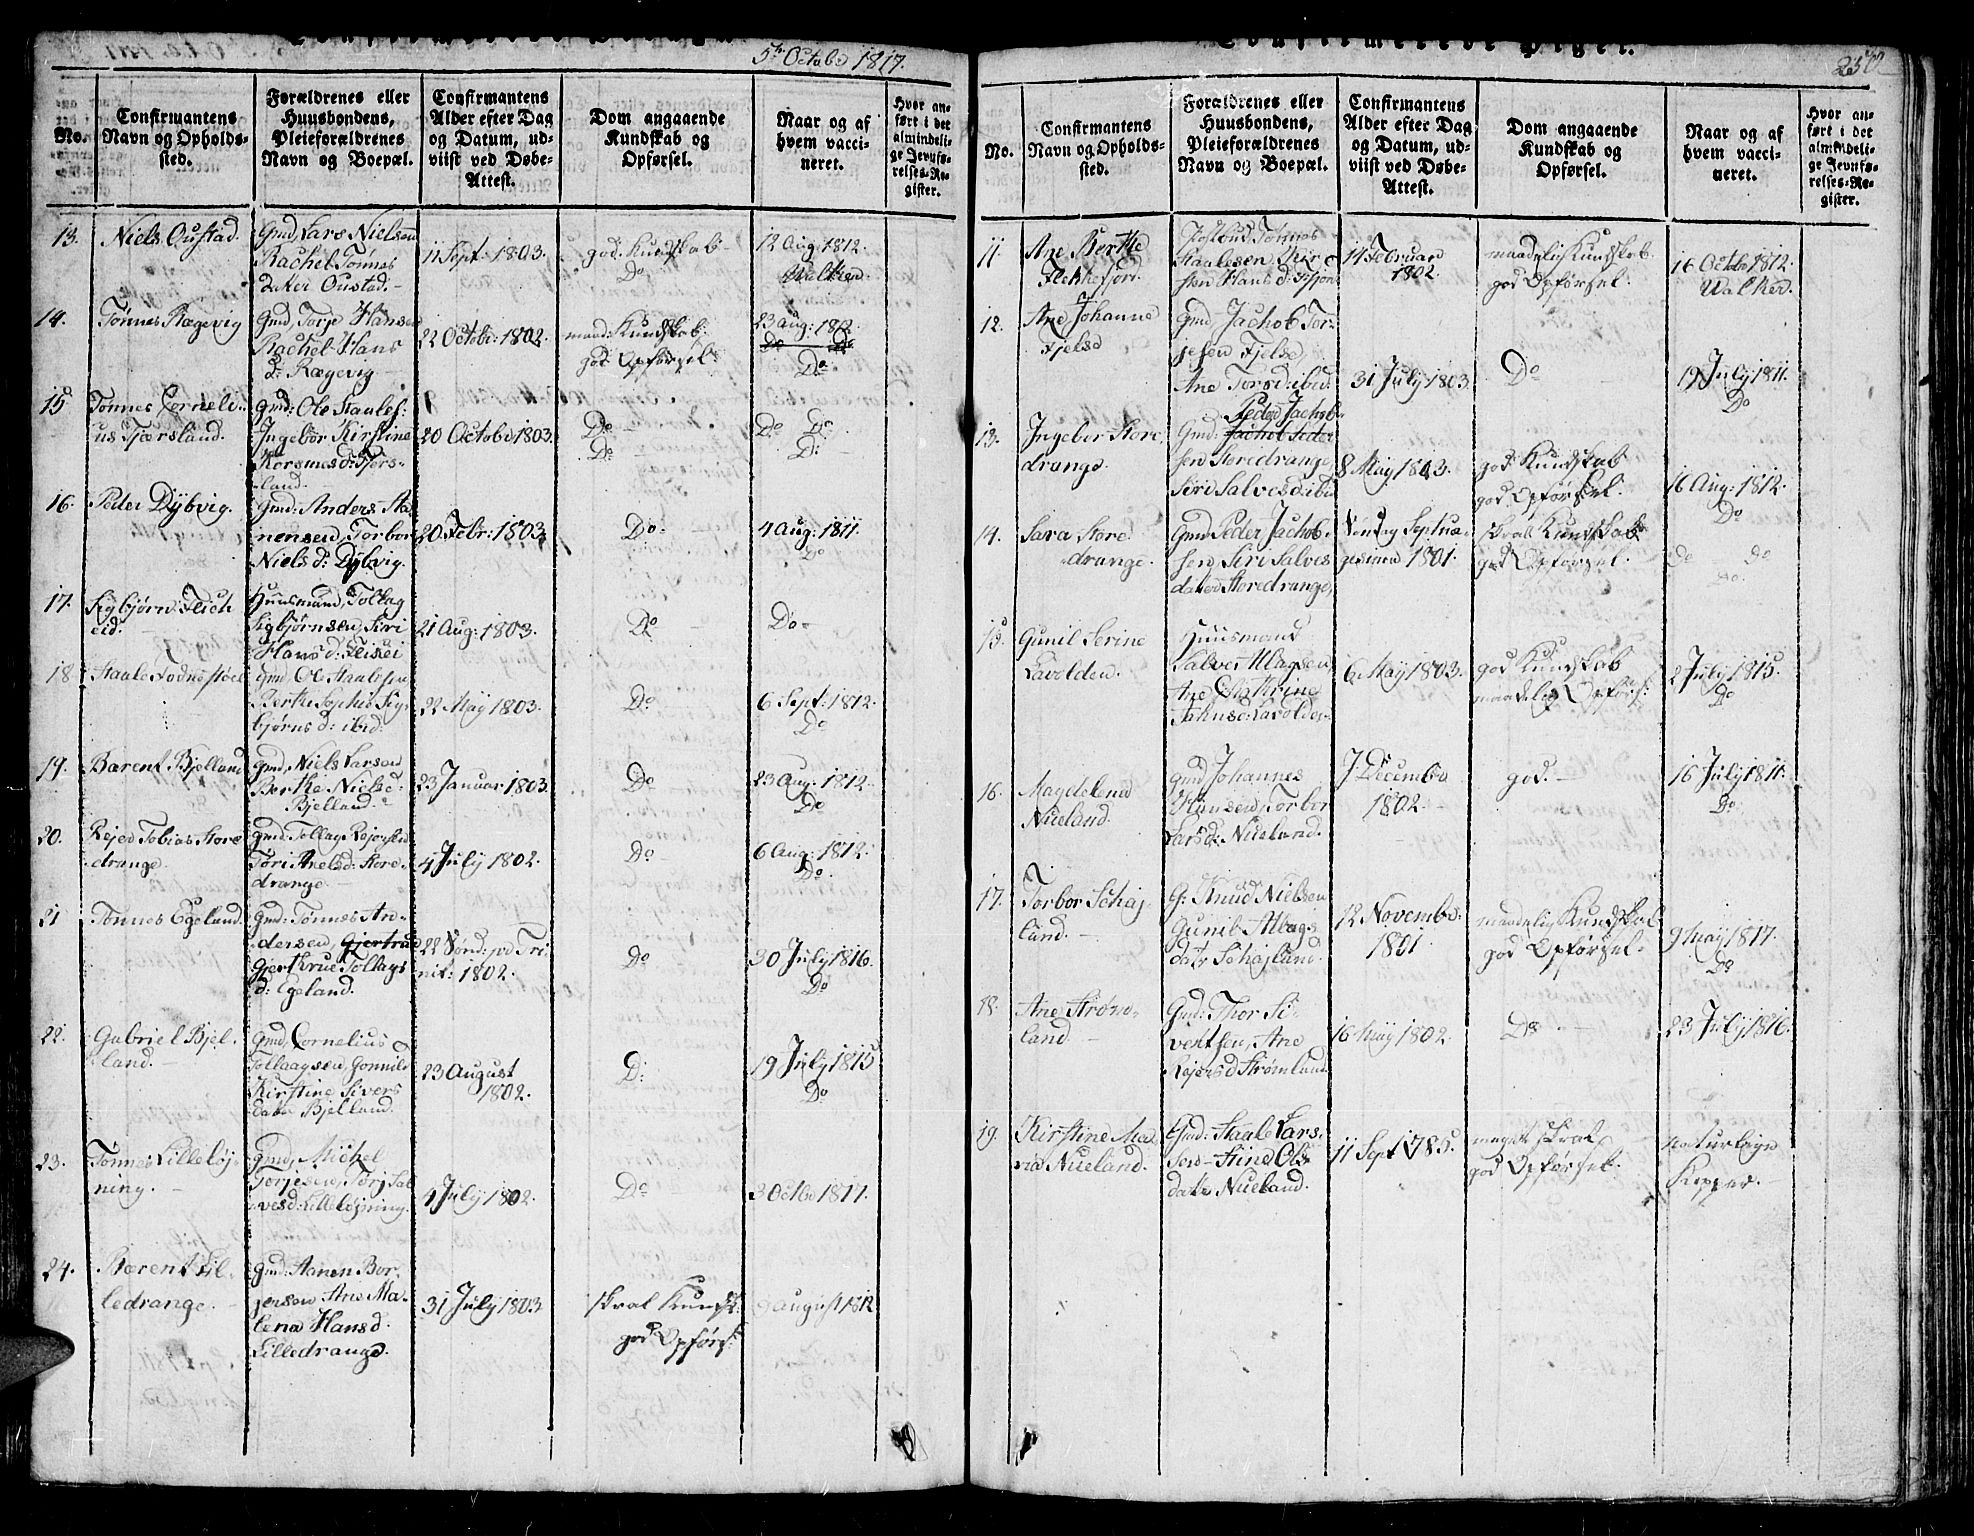 5te Octobr 1817.
No.
Confirmantens
Navn og Opholds-
sted.
Forældrenes eller
Huusbondens,
Pleieforældrenes
Navn og Boepæl.
Confirmantens
Alder efter Dag
og Datum, ud-
viist ved Døbe-
Attest.
Dom angaaende
Kundskab og
Opførsel.
Naar og af
hvem vacci-
neret.
Hvor an-
ført i det
almindeli-
ge Jevnfø-
relses-Re-
gister.
13.
Niels Oustad.
Gmd, Lars Nielsen
Rachel Tønnes
Oustad.
11 Sept: 1803.
god Kundskab
Do
12 Aug: 1812.
Walker.
14.
Tønnes Rægevig
Gmd, Torje Hansen
Rachel Hans
d: Rægevig
22 Octobr: 1802.
maad: Kundskab.
god Opførsel:
23 Aug: 1812.
Do
15
Tønnes Corneli-
us Tjørsland.
Gmd: Ole Staalef:
Ingebor Kirstine
Land.
20 Octobr 1803.
Do
Do
Do Do
D:
16.
Peder Dybvig.
Gmd: Anders Aa-
nensen, Torbor
Niels d: Dybvig.
20 Febr: 1803.
Do:
4 Aug: 1811.
Do
17.
Sigbjørn Flich
eid.
Huusmand, Tollag
Sigbjørnsen, Siri
Hans d: Flikei
21 Aug: 1803.
Do
Do
18
Gmd Ole Staalesen
Berthe Sophie Sig-
bjørns d: ibid:
22 May 1803.
Do
6 Sept: 1812.
Do
19.
Barent Bjelland
Gmd, Niels Larsen
Berthe Niels d:
Bjelland.
23 Januar 1803.
Do
23 Aug: 1812.
Do
20.
Rejer Tobias Store
drange.
Gmd: Tollag Rejersen
Tøri Axelsd: Store
drange
4 July 1802.
Do
6 Aug: 1812.
Do.
21
Tønnes Egeland.
Gmd: Tønnes An-
dersen,
Gjertrue Tollags
d: Egeland.
22 Sønd: p: Tri
nit: 1802.
Do
30 July 1816.
Do
22.
Gabriel Bjel-
land.
Gmd, Cornelius
Tollaagsen, Gonnild
Kirstine Sivers
datr Bjelland.
23 August
1802.
D:
19 July 1815
Do
23.
Tønnes Lilleløj-
ning.
Gmd, Michel
Torjesen, Torj Sal
vesd: Lilleløjning.
4 July 1802.
Do
3 Octbr 1817.
24.
Barent Lil-
ledrange.
Gmd: Aanen Bor-
jersen Ane Ma-
lena Hans d.
Lilledrange.
31 July 1803
skral Kundsk:
god Opførs:
9 August 1812
Confirmerede Piger.
250
No.
Confirmantens
Navn og Opholds-
sted.
Forældrenes eller
Huusbondens,
Pleieforældrenes
Navn og Boepæl.
Confirmantens
Alder efter Dag
og Datum, ud-
viist ved Døbe-
Attest.
Dom angaaende
Kundskab og
Opførsel.
Naar og af
hvem vacci-
neret.
Hvor an-
ført i det
almindeli-
ge Jevnfø-
relses-Re-
gister.
11.
Ane Berthe
Flekkefjord.
Tønnes
Staalesen, Kir
14 Februar
1802.
maadelig Kundskab.
god Opførsel.
16 Octobr 1812.
Walker.
12.
Ane Johanne
Fjelse
Gmd, Jachob Tor-
jesen Fjelse,
Ane Torsd: ibid:
31 July 1803.
Do
19 July 1811.
Do
13.
Ingebor Store
drange.
Peder Jachob-
Gmd: Jachob Peder
sen Storedrange,
Siri Salves d: ibid
8 May 1803.
god Kundskab
god Opførsel.
16 Aug: 1812.
Do
14.
Sara Store
drange.
Gmd Peder Jachob-
sen, Siri Salves
dater Storedrange,
Søndag Septua-
gesima 1801.
skral Kundskab
god Opførsel.
Do Do
Do.
15.
Gunil Serine
Lavolden.
Huusmand
Ane Cathrine
6 May 1803.
god Kundskab
maadelig Opførs:
2 July 1815.
Do
16.
Magdelena
Nueland.
Gmd Johannes
Hansen, Torbor
Lars d: Nueland.
7 Decembr
1802.
god.
16 July 1811.
Do
17.
Torbor Schøj-
land.
G: Knud Nielsen
Gunil Atlags
datr Schøjland.
12 Novembr:
1801
maadelig Kundskab
god Opførsel.
9 May 1817.
Do
18.
Ane Strøm-
land.
Gmd: Thor Si-
vertsen, Ane
Rejers d Strømland
16 May 1802.
Do
23 July 1816.
19.
Kirstine Ma
ria Nueland.
Gmd: Staale Lars-
sen Stine Ols
datr Nueland.
11 Sept 1785.
meget skral,
god Opførsel.
naturlige
Kopper.